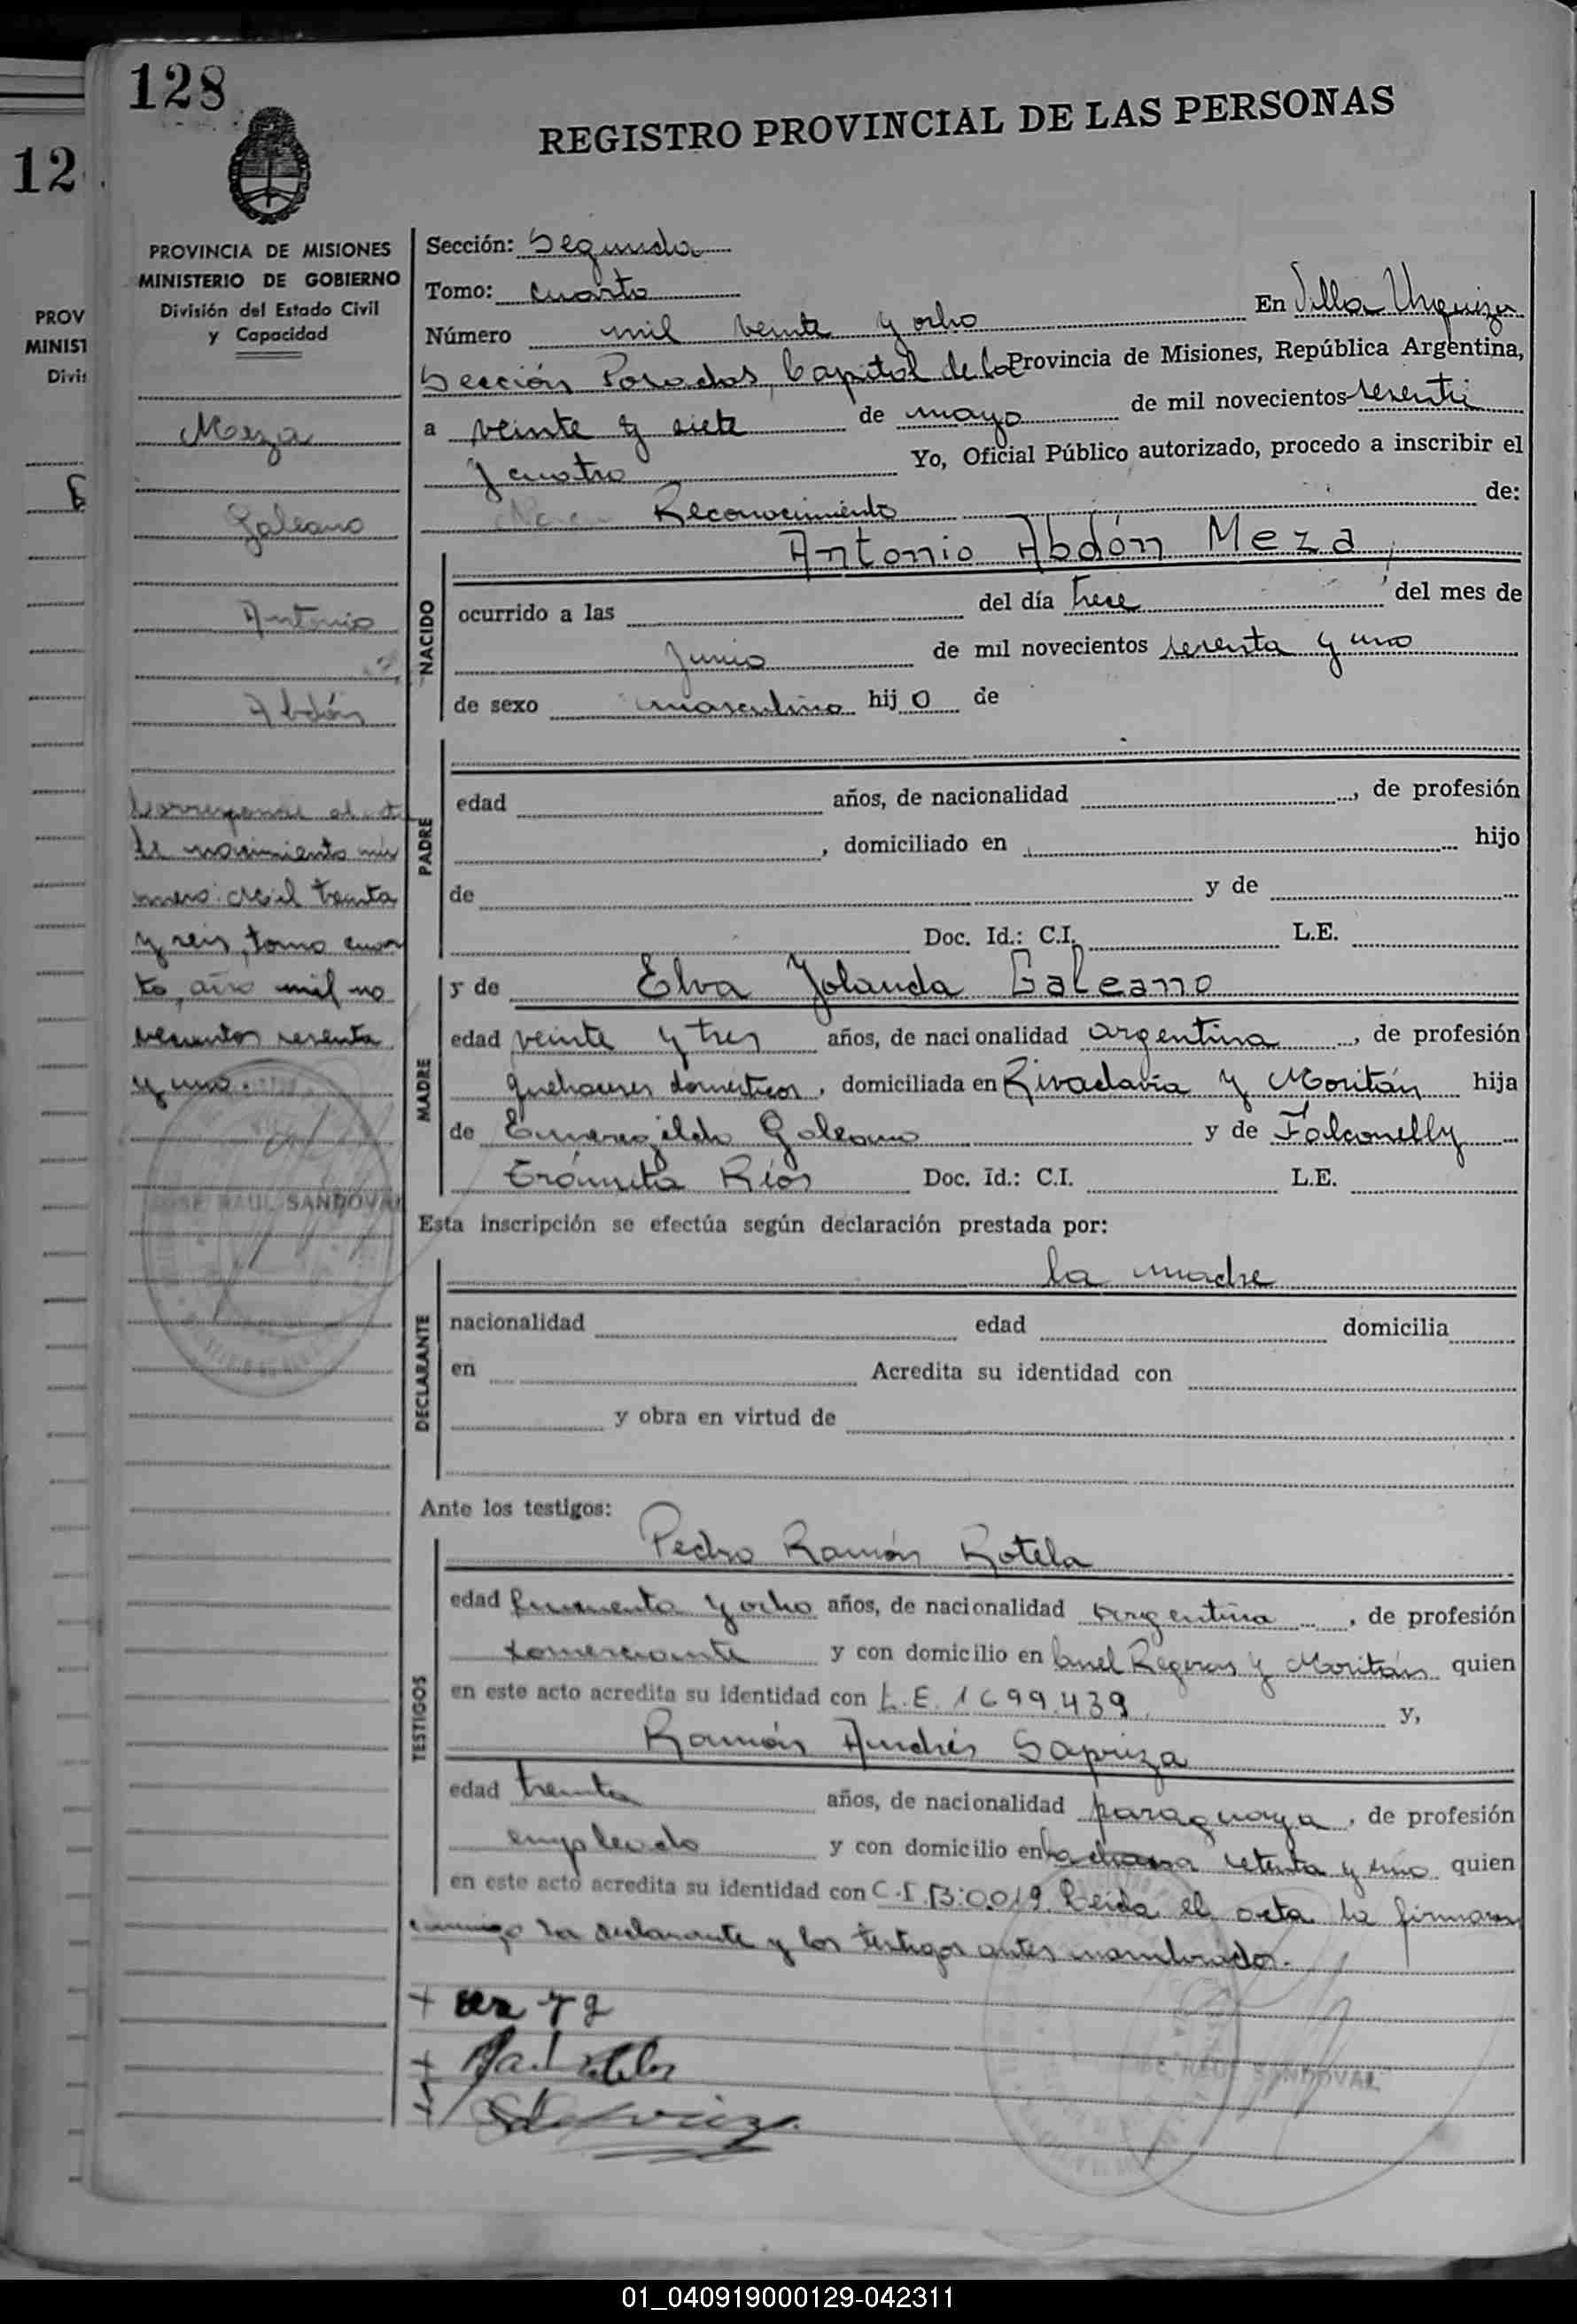 128
REGISTRO PROVINCIAL DE LAS PERSONAS
12
PROVINCIA DE MISIONES
MINISTERIO DE GOBIERNO
División del Estado Civil
y Capacidad
PROV
MINIST
Divis
Meza
Galeano
Antonio
Abdón
Corresponde al acta
de nacimiento nú
mero: Mil treinta
y seis, tomo cuar
to, año mil no
vecientos sesenta
y uno.
JOSE RAUL SANDOVAL
Sección: Segunda
Tomo: cuarto
Número mil veinte y ocho En Villa Urquiza
Sección Posadas, Capital de la Provincia de Misiones, República Argentina,
a veinte y siete de mayo de mil novecientos sesenti
y cuatro Yo, Oficial Público autorizado, procedo a inscribir el
Reconocimiento de:
Antonio Abdón Meza,
NACIDO
ocurrido a las del día trece del mes de
junio de mil novecientos sesenta y uno
de sexo masculino hijo de
PADRE
edad años, de nacionalidad , de profesión
, domiciliado en hijo
de y de
Doc. Id.: C.I. L.E.
MADRE
y de Elva Yolanda Galeano
edad veinte y tres años, de nacionalidad argentina, de profesión
quehaceres domésticos, domiciliada en Rivadavia y Moritán hija
de Emeregildo Galeano y de Falconelly
Erómita Ríos Doc. Id.: C.I. L.E.
Esta inscripción se efectúa según declaración prestada por:
la madre
DECLARANTE
nacionalidad edad domicilia
en Acredita su identidad con
y obra en virtud de
Ante los testigos:
TESTIGOS
Pedro Ramón Rotela
edad cuarenta y ocho años, de nacionalidad argentina, de profesión
comerciante y con domicilio en y Moritán quien
en este acto acredita su identidad con L.E. 1699.439, y,
Ramón Andrés Sapriza
edad treinta años, de nacionalidad paraguaya, de profesión
empleado y con domicilio en chacra setenta y uno quien
en este acto acredita su identidad con C.I. 13:0.019. Leída el acta la firman
conmigo la declarante y los testigos antes nombrados.
JOSE RAUL SANDOVAL
01_040919000129-042311